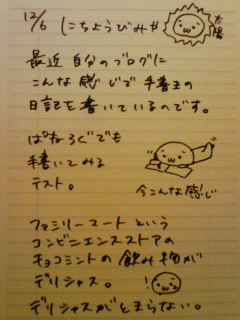 12/6 にちようびみや
太陽
最近 自分のブログに
こんな感じで手書きの
日記を書いているのです。
ぱなろぐでも
書いてみる
テスト。
今こんな感じ
ファミリーマートという
コンビニエンスストアの
チョコミントの飲み物が
デリシャス。
デリシャスがとまらない。